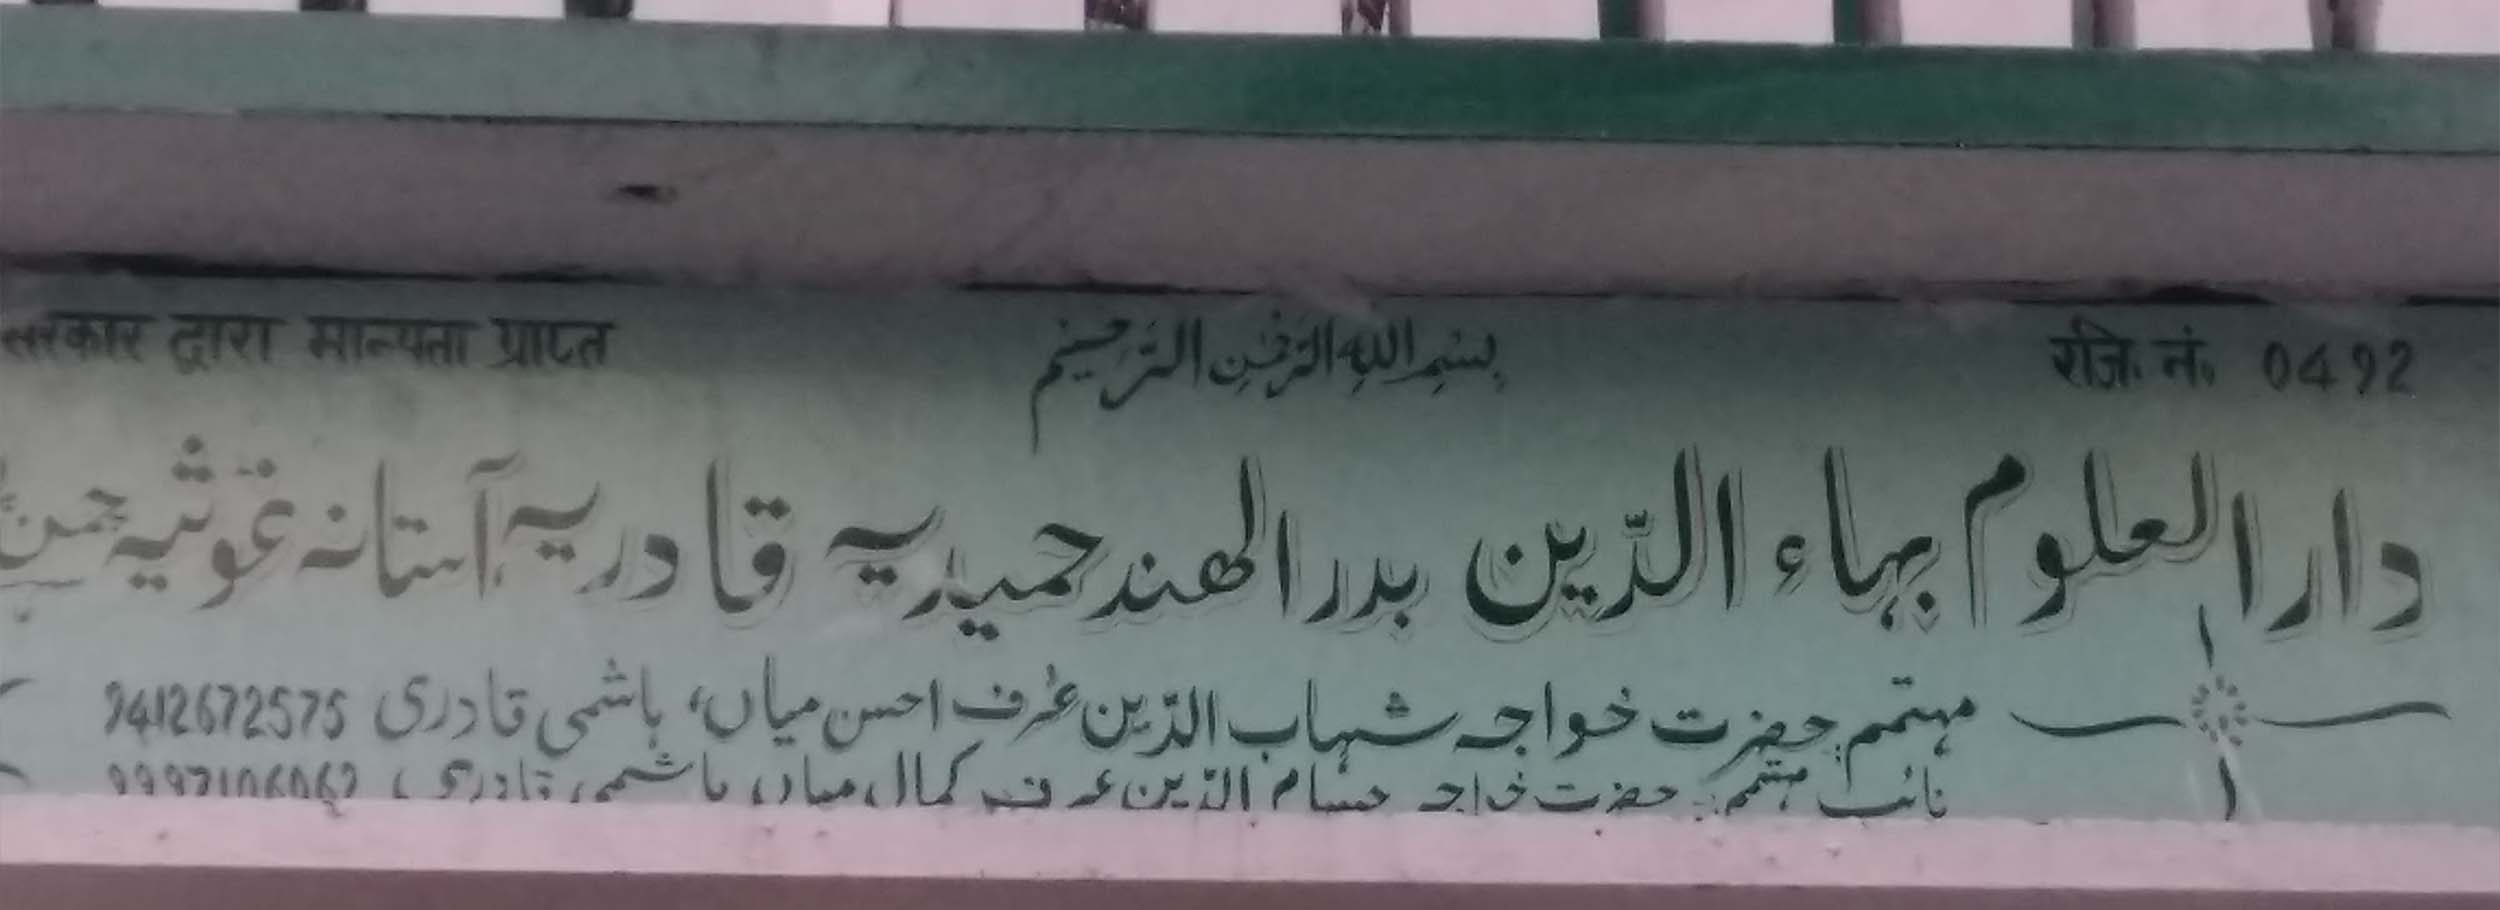 सरकार द्वारा मान्यता प्राप्त
بسم اللہ الرحمن الرحیم
रजि. नं. 0492
دارالعلوم بہاء الدّین بدر الھند حمیدیہ قادریہ آستانہ غوثیہ
مہتمم حضرت خواجہ شہاب الدّین عُرف احسن میاں، ہاشمی قادری 9412672575
نائب مہتمم حضرت خواجہ حسام الدّین عرف کمال میاں ہاشمی قادری، 9997106062